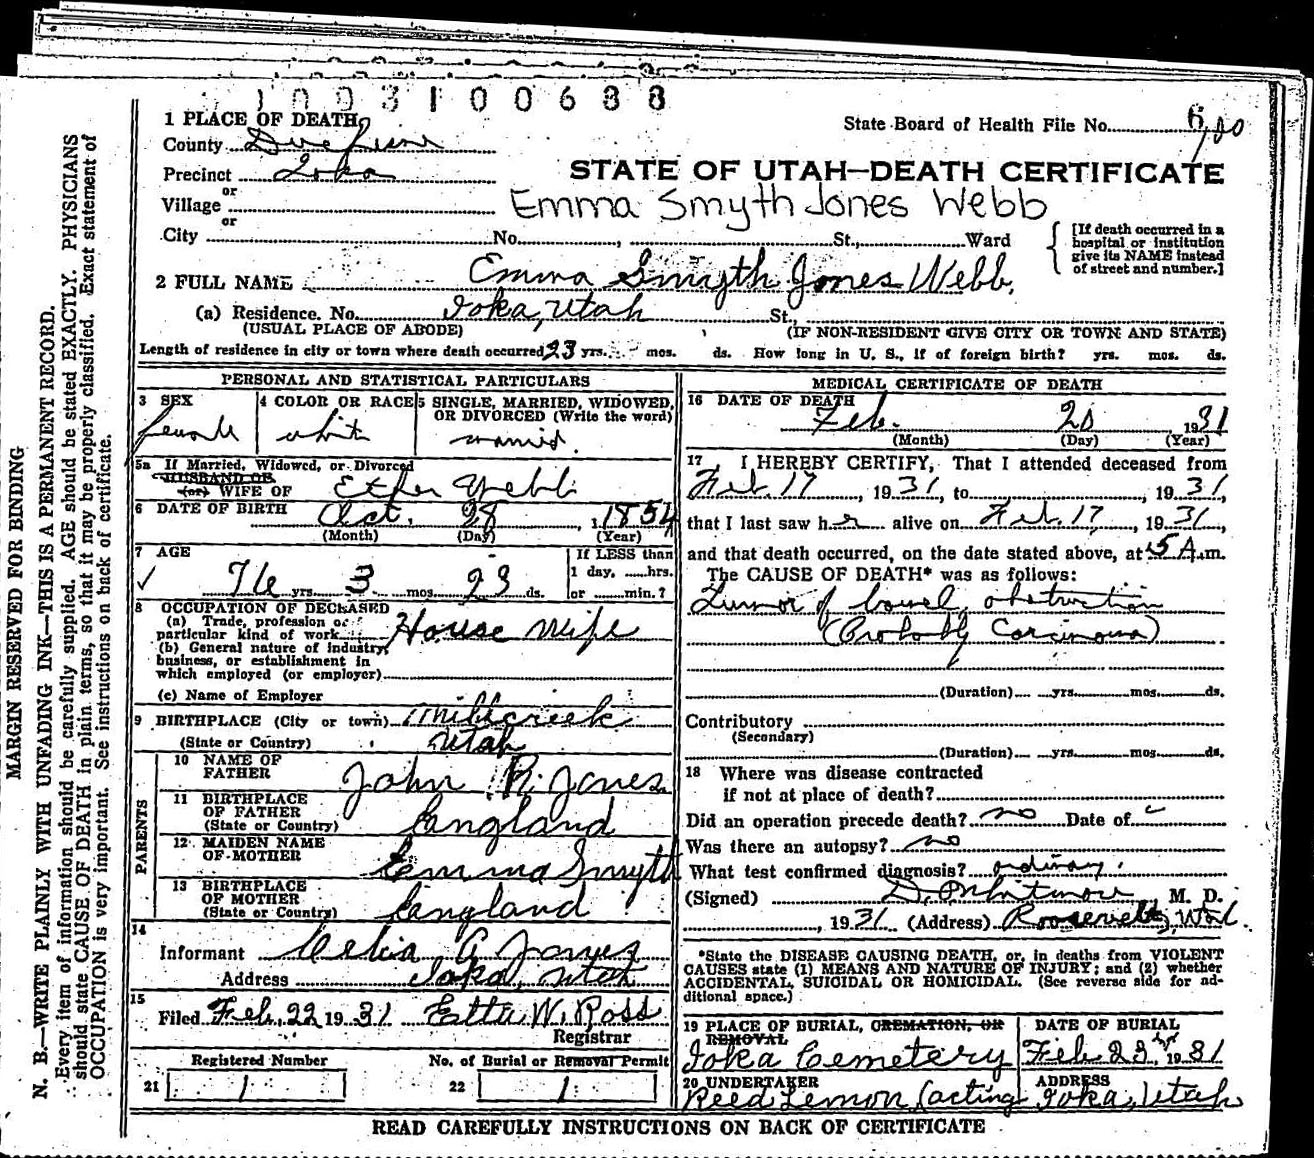 1 0 0 3 1 0 0 6 8 8
1 PLACE OF DEATH
State Board of Health File No.
County Duchesne
Precinct Ioka
STATE OF UTAH—DEATH CERTIFICATE
or
Village
Emma Smyth Jones Webb
or
City No. , St., Ward
[If death occurred in a hospital or institution give its NAME instead of street and number.]
2 FULL NAME Emma Smyth Jones Webb.
(a) Residence. No. Ioka, Utah St.,
(USUAL PLACE OF ABODE) (IF NON-RESIDENT GIVE CITY OR TOWN AND STATE)
Length of residence in city or town where death occurred 23 yrs. mos. ds. How long in U. S., if of foreign birth? yrs. mos. ds.
PERSONAL AND STATISTICAL PARTICULARS
3 SEX
female
4 COLOR OR RACE
white
5 SINGLE, MARRIED, WIDOWED, OR DIVORCED (Write the word)
married.
5a If Married, Widowed, or Divorced
HUSBAND OR
(or) WIFE OF Ether Webb
6 DATE OF BIRTH Oct. 28, 1854
(Month) (Day) (Year)
7 AGE
76 yrs. 3 mos. 23 ds.
If LESS than
1 day, hrs.
or min.?
8 OCCUPATION OF DECEASED
(a) Trade, profession or
particular kind of work House Wife
(b) General nature of industry,
business, or establishment in
which employed (or employer)
(c) Name of Employer
9 BIRTHPLACE (City or town) Millcreek
(State or Country) Utah
PARENTS
10 NAME OF
FATHER John R. Jones
11 BIRTHPLACE
OF FATHER
(State or Country) England
12 MAIDEN NAME
OF MOTHER Emma Smyth
13 BIRTHPLACE
OF MOTHER
(State or Country) England
14
Informant Celia A Jones
Address Ioka, Utah
15
Filed Feb. 22 1931 Etta W. Ross
Registrar
Registered Number
21 1
No. of Burial or Removal Permit
22 1
MEDICAL CERTIFICATE OF DEATH
16 DATE OF DEATH
Feb. 20 1931
(Month) (Day) (Year)
17 I HEREBY CERTIFY, That I attended deceased from
Feb. 17, 1931, to , 1931,
that I last saw her alive on Feb. 17, 1931,
and that death occurred, on the date stated above, at 5 A.m.
The CAUSE OF DEATH* was as follows:
Tumor of bowel, obstruction
(Probably Carcinoma)
(Duration) yrs. mos. ds.
Contributory
(Secondary)
(Duration) yrs. mos. ds.
18 Where was disease contracted
if not at place of death?
Did an operation precede death? no Date of
Was there an autopsy? no
What test confirmed diagnosis? ordinary.
(Signed) D. Whitmore M. D.
, 1931 (Address) Roosevelt, Utah
*State the DISEASE CAUSING DEATH, or, in deaths from VIOLENT
CAUSES state (1) MEANS AND NATURE OF INJURY; and (2) whether
ACCIDENTAL, SUICIDAL OR HOMICIDAL. (See reverse side for ad-
ditional space.)
19 PLACE OF BURIAL, CREMATION, OR
REMOVAL
Ioka Cemetery
DATE OF BURIAL
Feb 23, 1931
20 UNDERTAKER
Reed Lemon (acting
ADDRESS
Ioka, Utah
READ CAREFULLY INSTRUCTIONS ON BACK OF CERTIFICATE
MARGIN RESERVED FOR BINDING
N. B.—WRITE PLAINLY WITH UNFADING INK—THIS IS A PERMANENT RECORD.
Every item of information should be carefully supplied. AGE should be stated EXACTLY. PHYSICIANS
should state CAUSE OF DEATH in plain terms, so that it may be properly classified. Exact statement of
OCCUPATION is very important. See instructions on back of certificate.